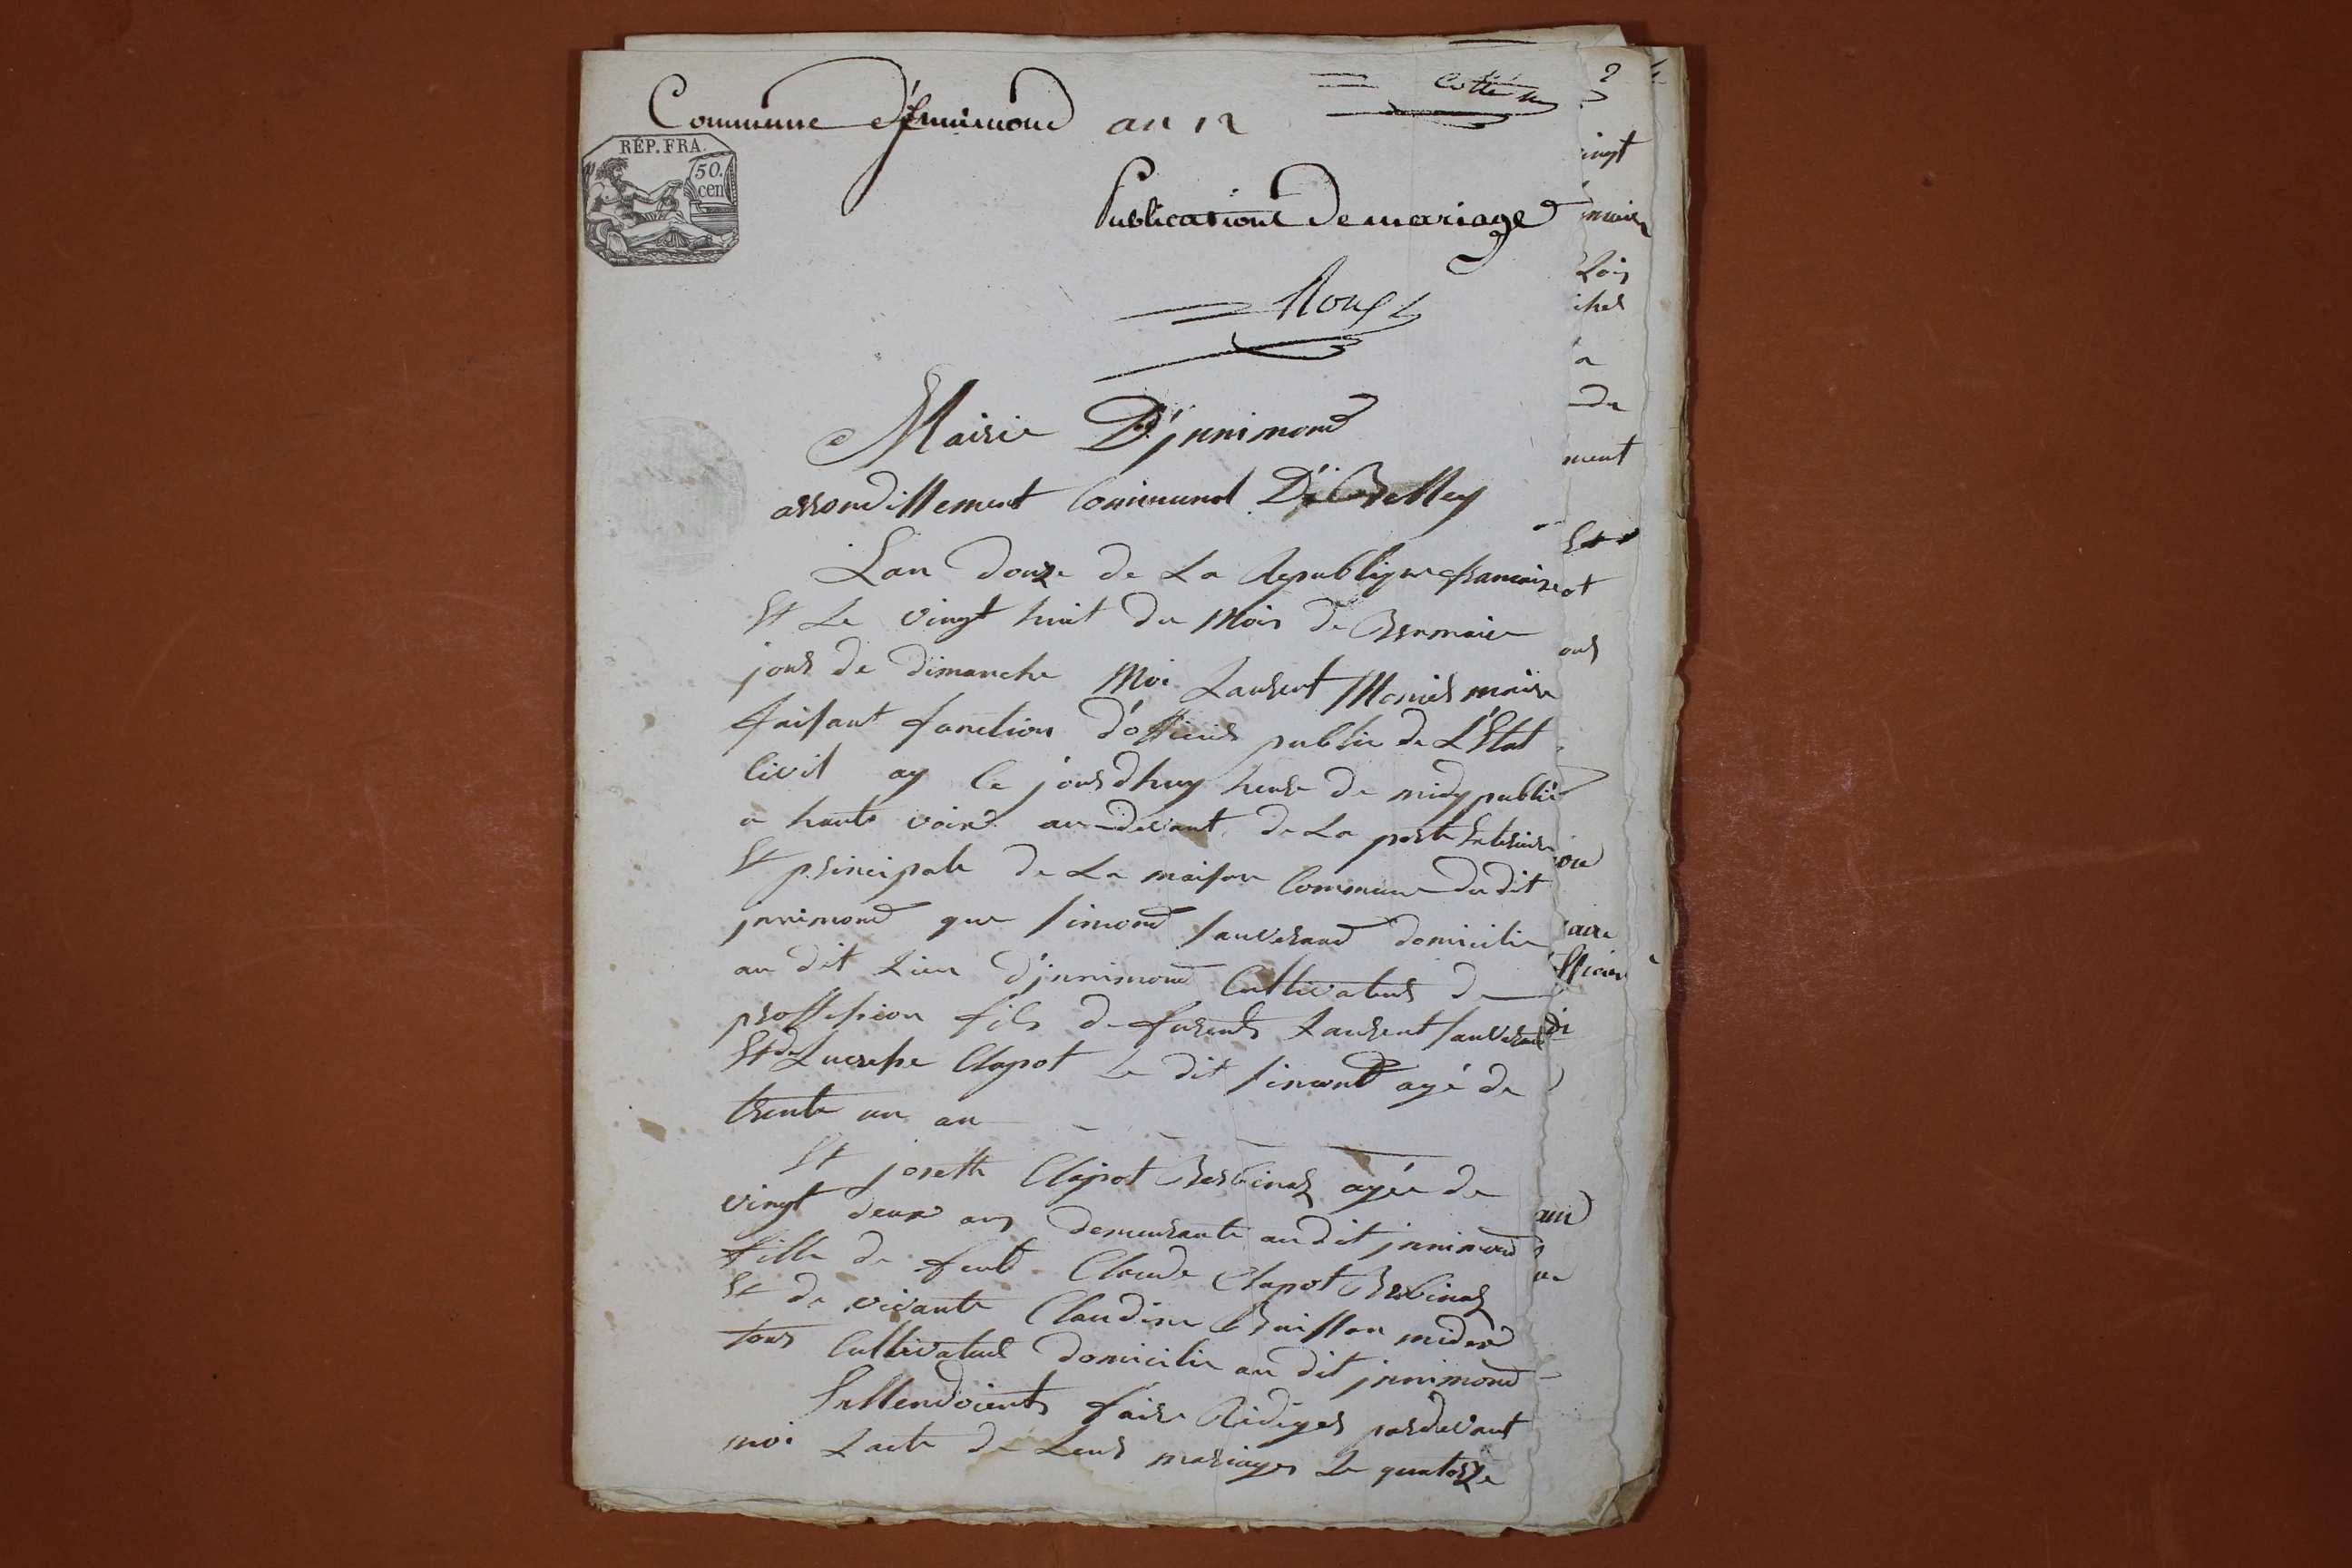 Commune d'jnnimond an 12
Cotte
RÉP. FRA.
50.
cen
Publications de mariage
Mairie D'jnnimond
arrondissement Communal De Belley
Lan douze de La Republique francaise
Et Le vingt huit du Mois de Brumaire
jour de dimanche Moi Laurent Monier maire
faisant fonction d'officier public de L'Etat
Civil ay Ce jourdhuy heure de midy publié
a haute voix au devant de La porte Exterieure
Et principale de La maison Commune du dit
jnnimond que Simond Sauverand domicilie
au dit Lieu d'jnnimond Cultivateur de
proffession fils de furent Laurent Sauverand
Et de Lucresse Clapot Le dit Simond agé de
trente un an
Et josette Clapot Berbinas agée de
vingt deux ans demeurante au dit jnnimond
fille de feut Claude Clapot Berbinas
Et de vivante Claudine
tous Cultivateur domicilie au dit jnnimond
Entendoient faire Rédiger pardevant
moi Lacte de Leur mariages Le quatorze